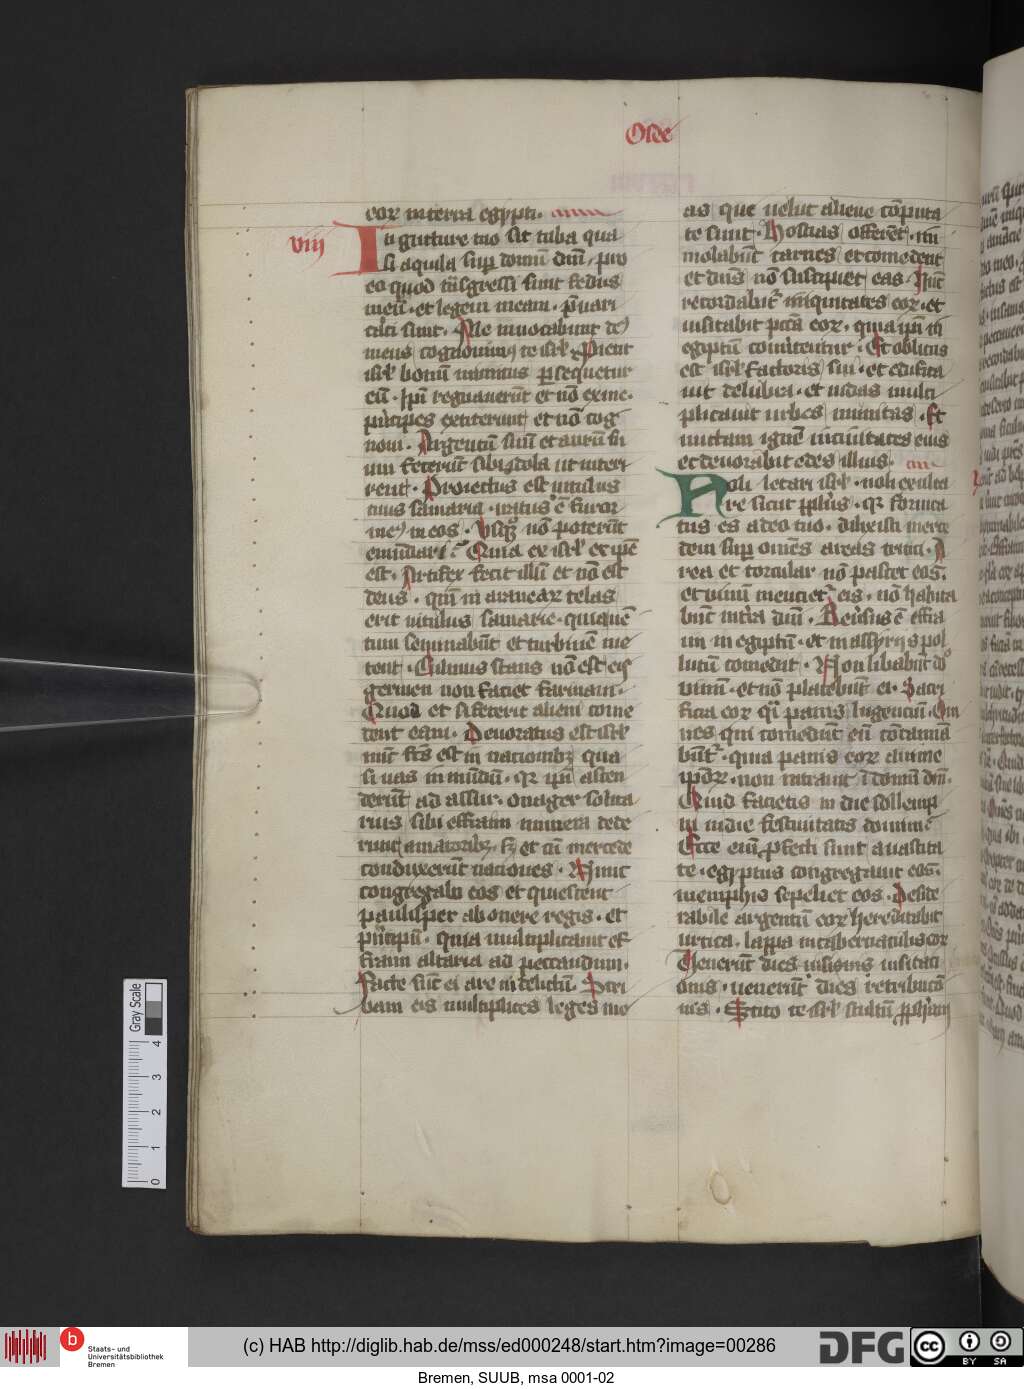 Osee
eor in terra egypti.
viii
In gutture tuo sit tuba qua
si aquila sup domū dni, pro
eo quod tnsgressi sunt fedus
meū. et legem meam. pvari
cati sunt. Me invocabunt de9
meus cognovim9 te isrl. Proiecit
isrl bonū inimicus psequetur
eū. Ipi regnaverūt et nō ex me.
principes extiterunt et nō cog
novi. Argentū suū et aurū su
um fecerūt sibi ydola ut interi
rent. Proiectus est vitulus
tuus samaria. iratus ē furor
me9 in eos. Usq3 nō poterūt
emūdari. Quia ex isrl et ipē
est. Artifex fecit illū et nō est
deus. qm in aranearū telas
erit vitulus samarie. qui quē
tum seminabūt et turbinē me
tent. Culmus stans nō est eis
germen non faciet farinam.
Quod et si fecerit alieni come
dent eam. Devoratus est isrl
nūc fcs est in nacionib3 qua
si vas inmūdū. qr ipi ascen
derūt ad assur. onager solita
rius sibi effraim munera dede
runt amatorib3. s3 et cū mercede
conduxerūt naciones. Nunc
congregabo eos et quiescent
paulisper ab onere regis. et
prīcipū. quia multiplicavit ef
fraim altaria ad peccandum.
facte sūt ei are in delictū. Scri
bam eis multiplices leges me
as que velut aliene cōputa
te sunt. Hostias offerēt. im
molabūt carnes et comedent
et dnūs nō suscipiet eas. Nūc
recordabitr iniquitates eor. et
visitabit pccā eor. quia ipi in
egiptū convertentur. Et oblitus
est isrl factoris sui. et edifica
vit delubra. et iudas multi
plicavit urbes munitas. Et
mittam ignē in civitates eius
et devorabit edes illius.
Noli letari isrl. noli exulta
re sicut ppli's. qr fornica
tus es a deo tuo. dilexisti merce
dem sup omēs areas tritici. A
rea et torcular nō pascet eos.
et vinū mencietr eis. nō habita
būt in tra dni. Reversus ē effra
im in egiptū. et in assyriis pol
lutū comedit. Non libabūt dō
vinū. et nō placebūt ei. Sacri
ficia eor qi panis lugenciū. Om
nes qui comedūt eū cōtamina
būtr. quia panis eor anime
ipor. non intravit ī domū dni.
Quid facietis in die sollemp
ni in die festivitatis domini
Ecce eni pfecti sunt a vastita
te. egyptus congregavit eos.
memphis sepeliet eos. Deside
rabile argentū eor hereditabit
urtica. lappa in tabernaculis eor
Venerūt dies visionis visitaci
onis. venerūt dies retribucō
nis. Scito te isrl stultū pphām
Gray Scale
4
3
2
1
0
b
Staats- und
Universitätsbibliothek
Bremen
(c) HAB http://diglib.hab.de/mss/ed000248/start.htm?image=00286
DFG
cc
BY SA
Bremen, SUUB, msa 0001-02